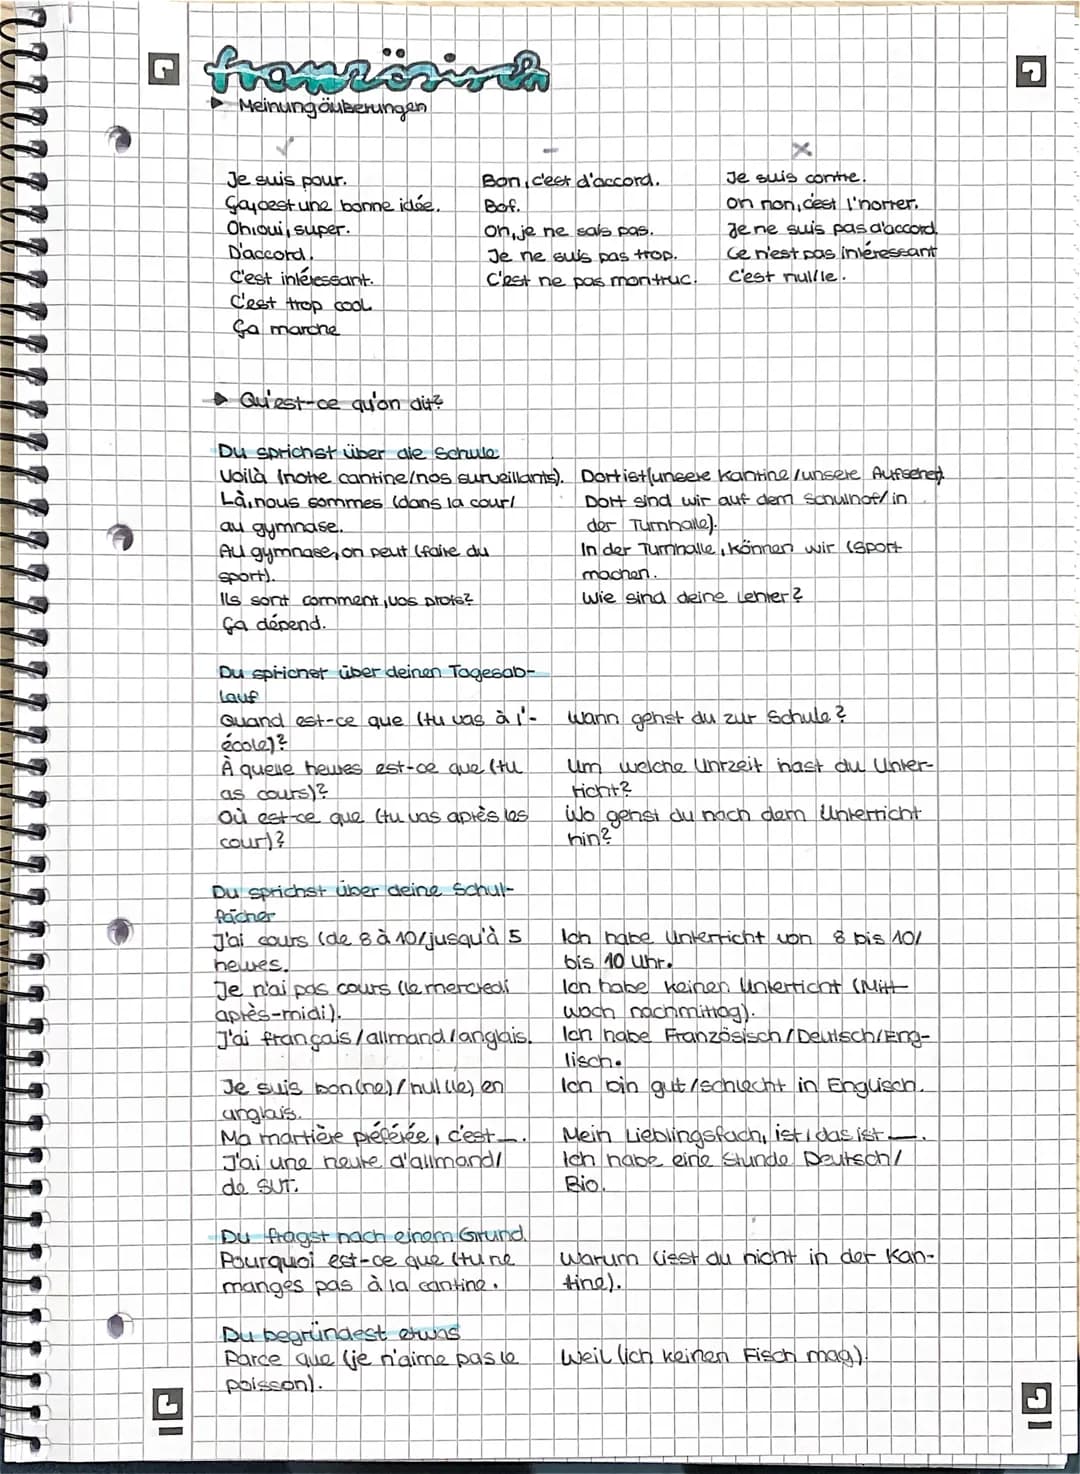 französisch
▸ Meinungäußerungen
✓ – ×
Je suis pour. Bon, c'est d'accord. Je suis contre.
Ça, c'est une bonne idée. Bof. Oh non, c'est l'horrer.
Oh, oui, super. Oh, je ne sais pas. Je ne suis pas d'accord.
D'accord. Je ne suis pas trop. Ce n'est pas intéressant
C'est intéressant. C'est ne pas mon truc. C'est nul/le.
C'est trop cool
Ça marche
▸ Qu'est-ce qu'on dit?
Du sprichst über die Schule.
Voilà (notre cantine/nos surveillants). Dort ist (unsere Kantine/unsere Aufseher).
Là, nous sommes (dans la cour/ Dort sind wir auf dem Schulhof/in
au gymnase. der Turnhalle).
Au gymnase, on peut (faire du In der Turnhalle, können wir (Sport
sport). machen.
Ils sont comment, vos profs? Wie sind deine Lehrer?
Ça dépend.
Du sprichst über deinen Tagesab-
lauf
Quand est-ce que (tu vas à l'- Wann gehst du zur Schule?
école)?
À quelle heures est-ce que (tu Um welche Uhrzeit hast du Unter-
as cours)? richt?
Où est-ce que (tu vas après les Wo gehst du nach dem Unterricht
cour)? hin?
Du sprichst über deine Schul-
fächer
J'ai cours (de 8 à 10/jusqu'à 5 Ich habe Unterricht von 8 bis 10/
heures. bis 10 Uhr.
Je n'ai pas cours (le mercredi Ich habe keinen Unterricht (Mitt-
après-midi). woch nachmittag).
J'ai français/allmand/anglais. Ich habe Französisch/Deutsch/Eng-
lisch.
Je suis bon(ne)/nul(le) en Ich bin gut/schlecht in Englisch.
anglais.
Ma martière préférée, c'est —. Mein Lieblingsfach, ist/das ist —.
J'ai une heure d'allmand/ Ich habe eine Stunde Deutsch/
de SVT. Bio.
Du fragst nach einem Grund.
Pourquoi est-ce que (tu ne Warum (isst du nicht in der Kan-
manges pas à la cantine. tine).
Du begründest etwas
Parce que (je n'aime pas le Weil (ich keinen Fisch mag).
poisson).